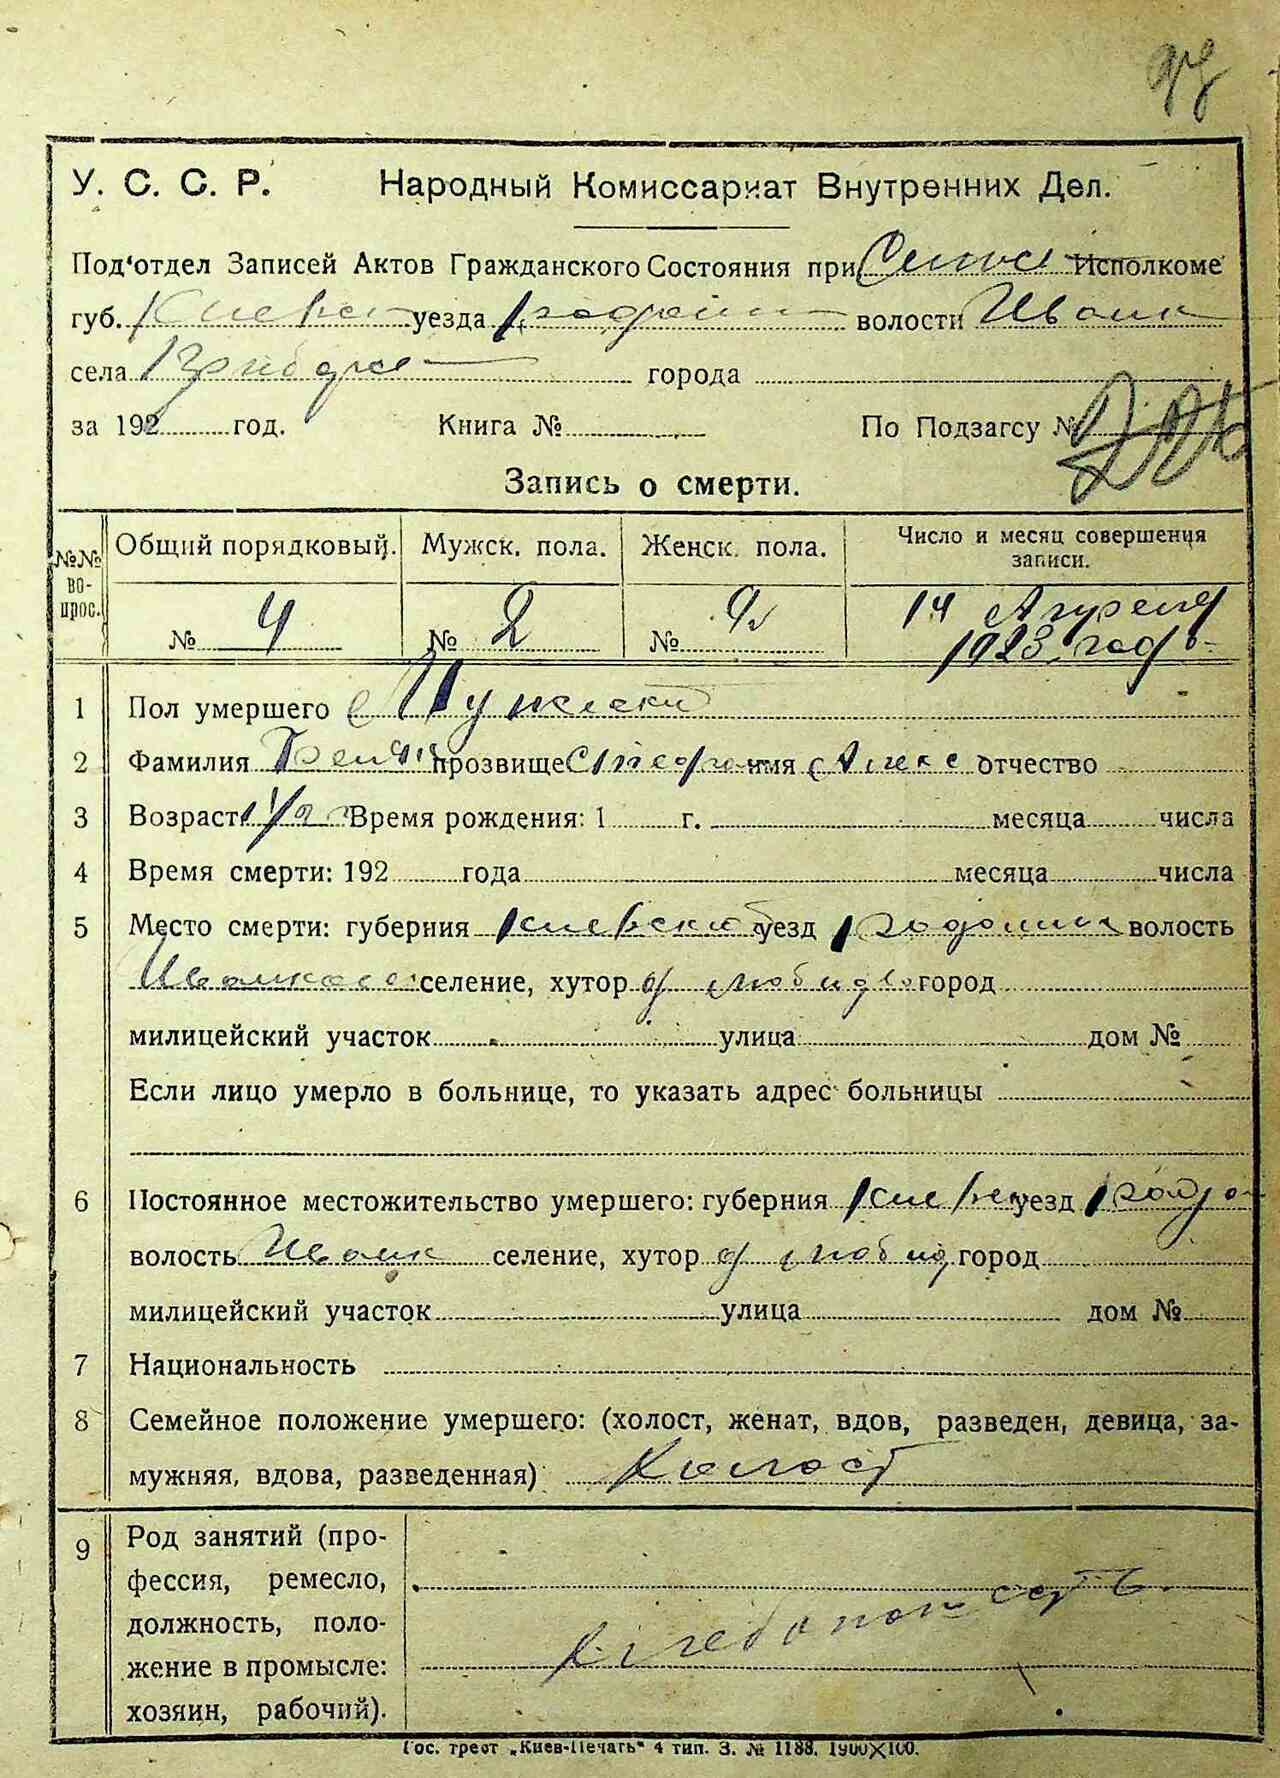 У. С. С. Р. Народный Комиссариат Внутренних Дел.
Под'отдел Записей Актов Гражданского Состояния при Исполкоме
губ. Киевск уезда волости Иванк
села города
за 192 год. Книга № По Подзагсу №
Запись о смерти.
№№ вопрос. Общий порядковый. Мужск. пола. Женск. пола. Число и месяц совершения записи.
№ 4 № 2 № 14 Апреля
1923 годъ
1 Пол умершего Мужской
2 Фамилия прозвище имя отчество
3 Возраст 1/2 Время рождения: 1 г. месяца числа
4 Время смерти: 192 года месяца числа
5 Место смерти: губерния Киевской уезд волость
селение, хутор город
милицейский участок улица дом №
Если лицо умерло в больнице, то указать адрес больницы
6 Постоянное местожительство умершего: губерния Киевск уезд
волость Иванк селение, хутор город
милицейский участок улица дом №
7 Национальность
8 Семейное положение умершего: (холост, женат, вдов, разведен, девица, за-
мужняя, вдова, разведенная) Холост
9 Род занятий (про-
фессия, ремесло,
должность, поло-
жение в промысле:
хозяин, рабочий).
Хлебопашество
Гос. трест „Киев-Печать" 4 тип. З. № 1188. 1900X100.